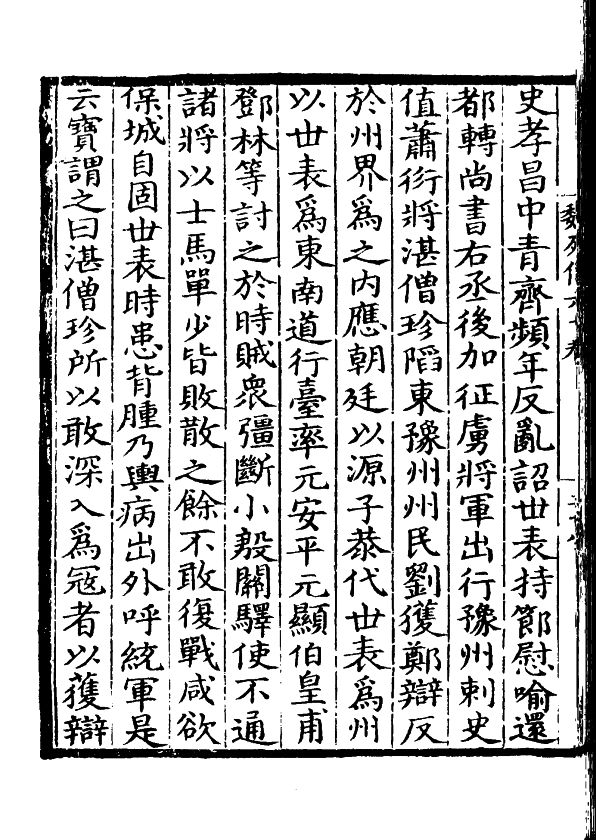 史孝昌中青齊頻年反亂詔世表持節慰喻還
都轉尚書右丞後加征虜將軍出行豫州刺史
值蕭衍將湛僧珍陷東豫州州民劉獲鄭辯反
於州界為之內應朝廷以源子恭代世表為州
以世表為東南道行臺率元安平元顯伯皇甫
鄧林等討之於時賊眾彊斷小殷關驛使不通
諸將以士馬單少皆敗散之餘不敢復戰咸欲
保城自固世表時患背腫乃輿病出外呼統軍是
云寶謂之曰湛僧珍所以敢深入為寇者以獲辯